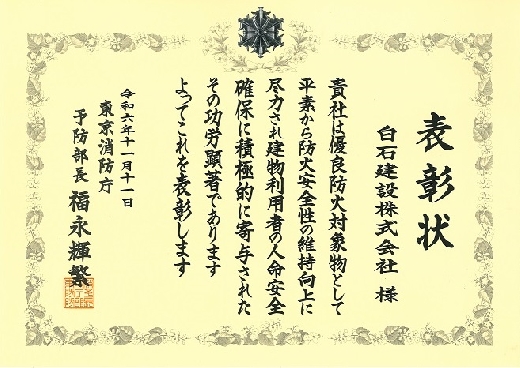 表彰状
白石建設株式会社 様
貴社は優良防火対象物として
平素から防火安全性の維持向上に
尽力され建物利用者の人命安全
確保に積極的に寄与された
その功労顕著であります
よってこれを表彰します
令和六年十一月十一日
東京消防庁
予防部長 福永輝繁